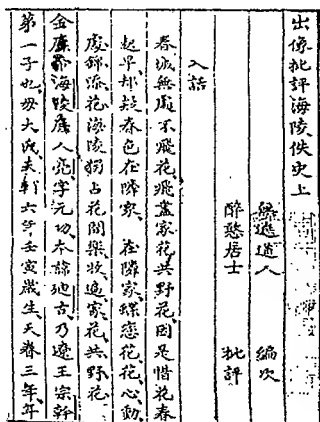 出像批評海陵佚史上
無遮道人 編次
醉憨居士 批評
入話
春城無處不飛花飛盡家花共野花因是惜花春
起早却疑春色在隣家 在隣家蝶戀花花心動
處錦添花海陵獨占花間樂收盡家花共野花
金廢帝海陵庶人亮字元功本諱迪古乃遼王宗幹
第二子也母大氏天輔六年壬寅歲生天眷三年年